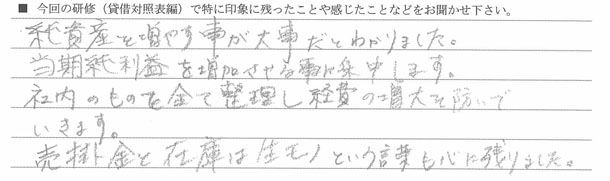 ■ 今回の研修（貸借対照表編）で特に印象に残ったことや感じたことなどをお聞かせ下さい。
純資産を増やす事が大事だとわかりました。
当期純利益を増加させる事に集中します。
社内のものを全て整理し経費の増大を防いで
いきます。
売掛金と在庫は生モノという言葉も心に残りました。